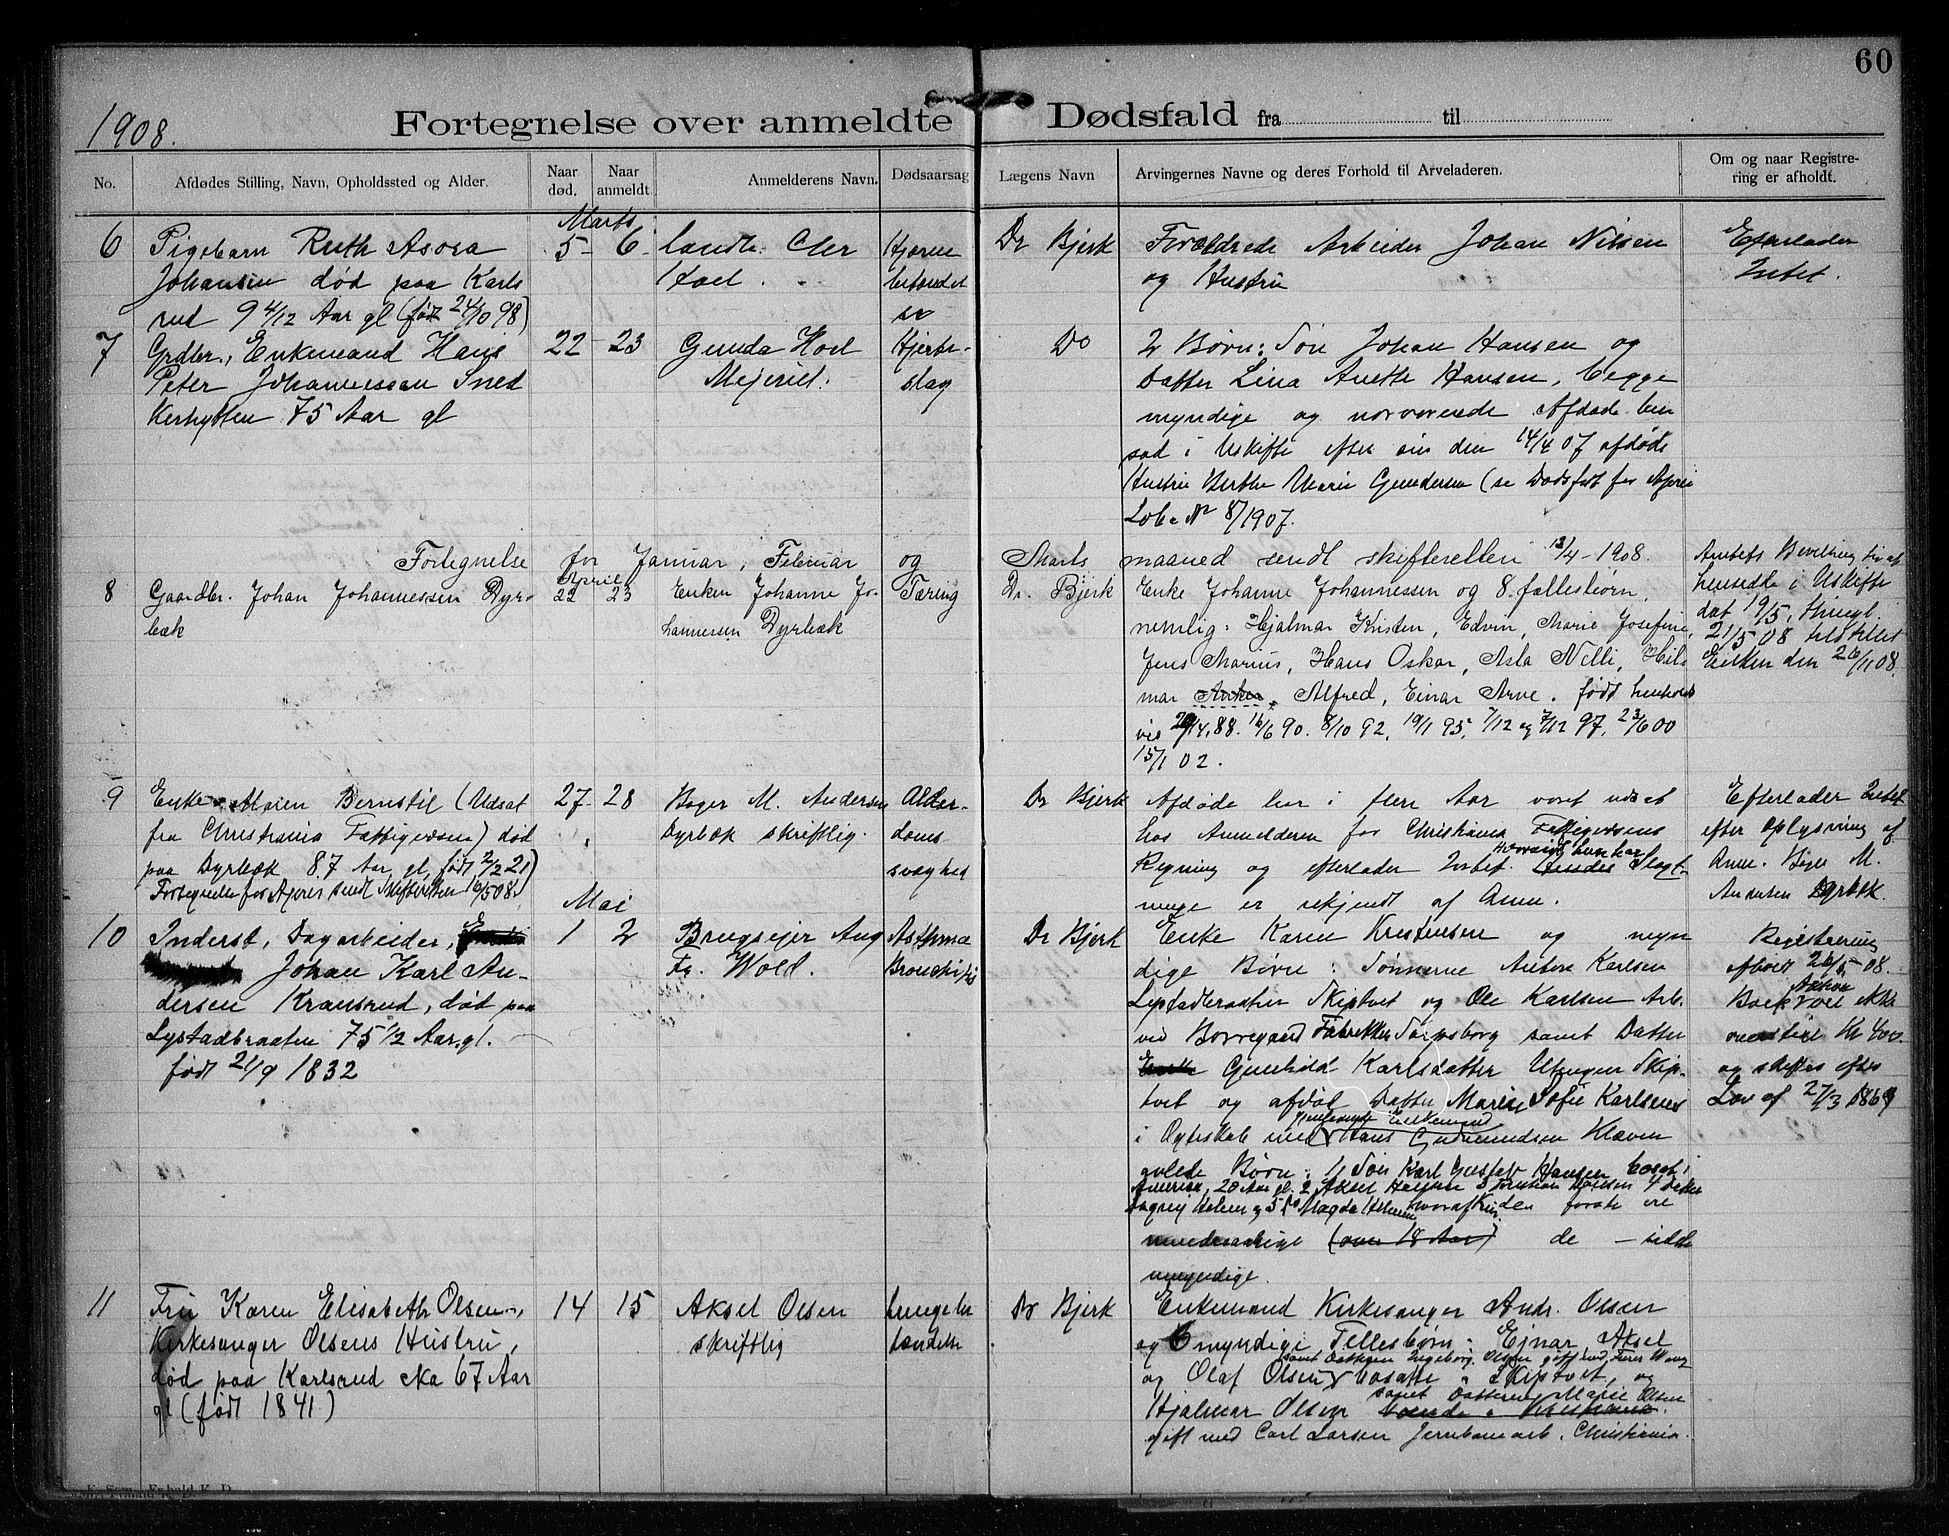 60
1908.
Fortegnelse over anmeldte Dødsfald fra til
No.
Afdødes Stilling, Navn, Opholdssted og Alder.
Naar død.
Naar anmeldt.
Anmelderens Navn.
Dødsaarsag
Lægens Navn
Arvingernes Navne og deres Forhold til Arveladeren.
Om og naar Registre-
ring er afholdt.
Marts
6
Pigebarn Ruth Asora
Johansen død paa Karls
rud 9 4/12 Aar gl (født 24/10 98)
5 - 6
Hjerne
betændel
se
Dr Bjerk
Forældrede Arbeider Johan Nilsen
og Hustru
Efterlader
Intet.
7
Grdbr., Enkemand Hans
Peter Johannessen Sned
kerhytten 75 Aar gl
22 - 23
Gunda Hoel
Mejeriet.
Hjerte-
slag
Do
2 Børn: Søn Johan Hansen og
Datter Lina Anette Hansen, begge
myndige og nærværende Afdøde hen
sad i Uskifte efter sin den 14/4 07 afdøde
Hustru Berthe Marie Gundersen (se Dødsfort for April
Løbe No 8/1907.
Fortegnelse for Januar, Februar og Marts maaned sendt skifteretten 13/4 - 1908.
April
8
Gaardbr. Johan Johannessen Dyr-
bæk
22 23
Enken Johanne Jo-
hannessen Dyrbæk
Tæring
Dr. Bjerk
Enke Johanne Johannessen og 8 fællesbørn,
nemlig: Hjalmar Kristen, Edvin, Marie Josefine,
Jens Marius, Hans Oskar, Asla Nilli, Hil
mar, Alfred, Einar Arve. født henholds
vis 29/4 88. 16/6 90. 8/10 92, 19/1 95, 7/12 og 7/12 97, 23/6 00
15/1 02.
Amtets Bevilling til at
hensidde i Uskifte
dat 19/5, thingl.
21/5 08 tilstillet
Enken den 26/11 08.
9
Enke Maren Bernstil (Udsat
fra Christiania Fattigvæsen) død
paa Dyrbæk 87 Aar gl, født 2/2 21)
Fortegnelse for April sendt Skifteretten 16/5 08.
27 - 28
Bager M. Andersen
Dyrbæk skriftlig.
Alder-
doms
svaghed
Dr Bjerk
Afdøde har i flere Aar været udsat
hos Anmelderen for Christiania Fattigvæsens
Regning og efterlader Intet. hvorvidt hun har Slægt-
ninge er ukjendt af Anm.
Efterlader Intet
efter Oplysning af
Anm. Bager M.
Andersen Dyrbæk.
Mai
10
Inderst, Dagarbeider,
Johan Karl An-
dersen Kransrud, død paa
Lystadbraaten 75 1/2 Aar gl.
født 21/9 1832
1 2
Brugseier Aug
Fr. Wold.
Asthma
Bronchitis
Dr Bjerk
Enke Karen Kristensen og myn
dige Børn: Sønnerne Anton Karlsen
Lystadbraaten Skiptvet og Ole Karlsen Arb.
ved Borregaard Fabrikker Sarpsborg samt Datter
Gunhild Karlsdatter Utengen Skip-
tvet og afdøl Datter Marie Sofie Karlsens
i Ægteskab med gjenlevende Enkemand Hans Gudmundsen Kleven
avlede Børn: 1/ Søn Karl Gustav Hansen bosat i
Amerika, 20 Aar gl. 2 Aksel Hansen 4 Datter
Dagny Helene og 5 Do Magda Helene hvoraf første ere
mindreaarige (over 18 Aar) de - sidste
umyndige.
Registrering
afholdt 26/5 08.
Anton
ikke
Kr 400
og skiftes efter
Lov af 27/3 1869
11
Fru Karen Elisabeth Olsen,
Kirkesanger Olsens Hustru,
død paa Karlsrud cka 67 Aar
gl (født 1841)
14 15
Aksel Olsen
skriftlig
Lungebe
tændelse
Dr Bjerk
Enkemand Kirkesanger Andr. Olsen
og 6 myndige Fellesbørn: Ejnar, Aksel
samt Datteren Ingeborg Olsen gift med
og Olaf Olsen bosatte i Skiptvet, og
samt Datteren Marie Olsen
Hjalmar Olsen boende i Kristiania.
gift med Carl Larsen Jernbanearb. Christiania.